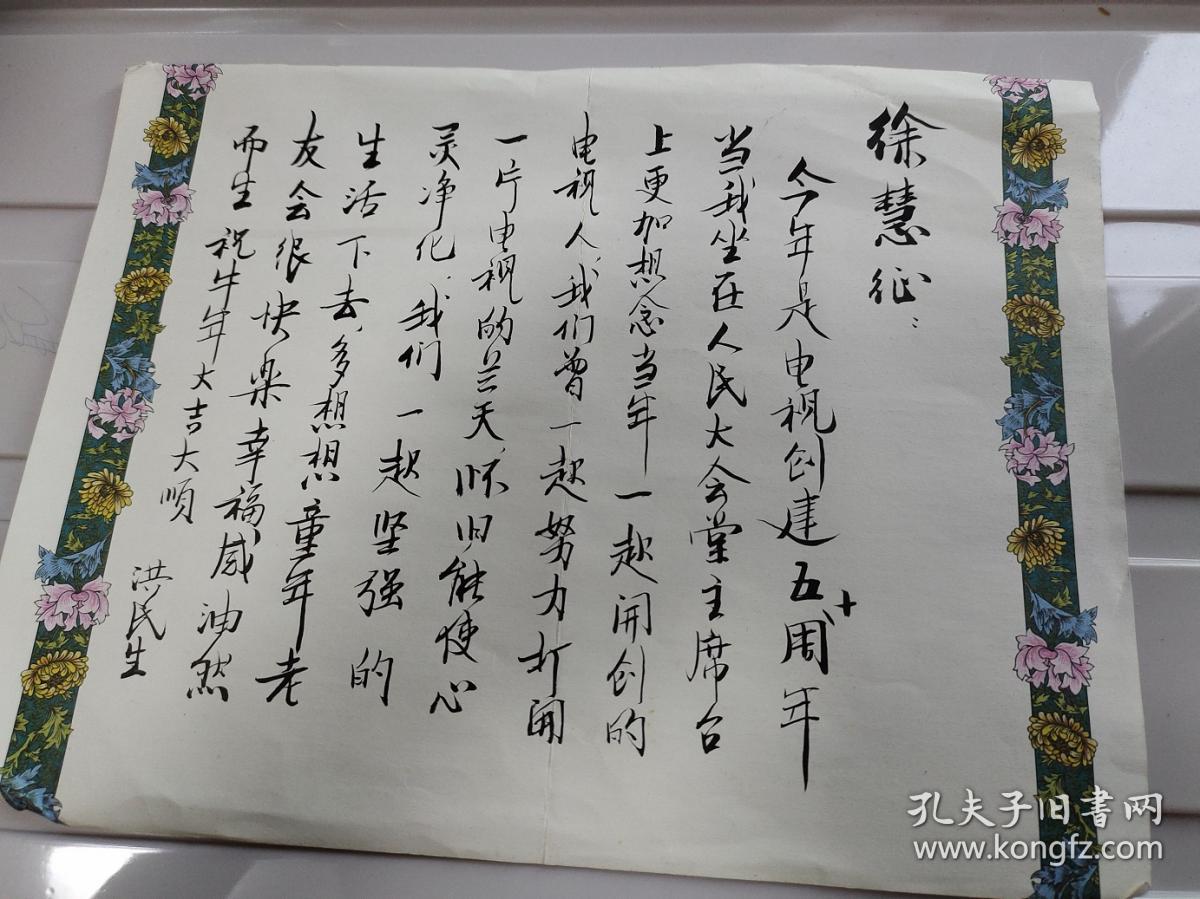 徐慧征：
今年是电视创建五十周年
当我坐在人民大会堂主席台
上更加想念当年一起开创的
电视人，我们曾一起努力打开
一片电视的兰天，怀旧能使心
灵净化，我们一起坚强的
生活下去，多想想童年老
友会很快乐幸福感油然
而生 祝牛年大吉大顺
洪民生
孔夫子旧书网
www.kongfz.com